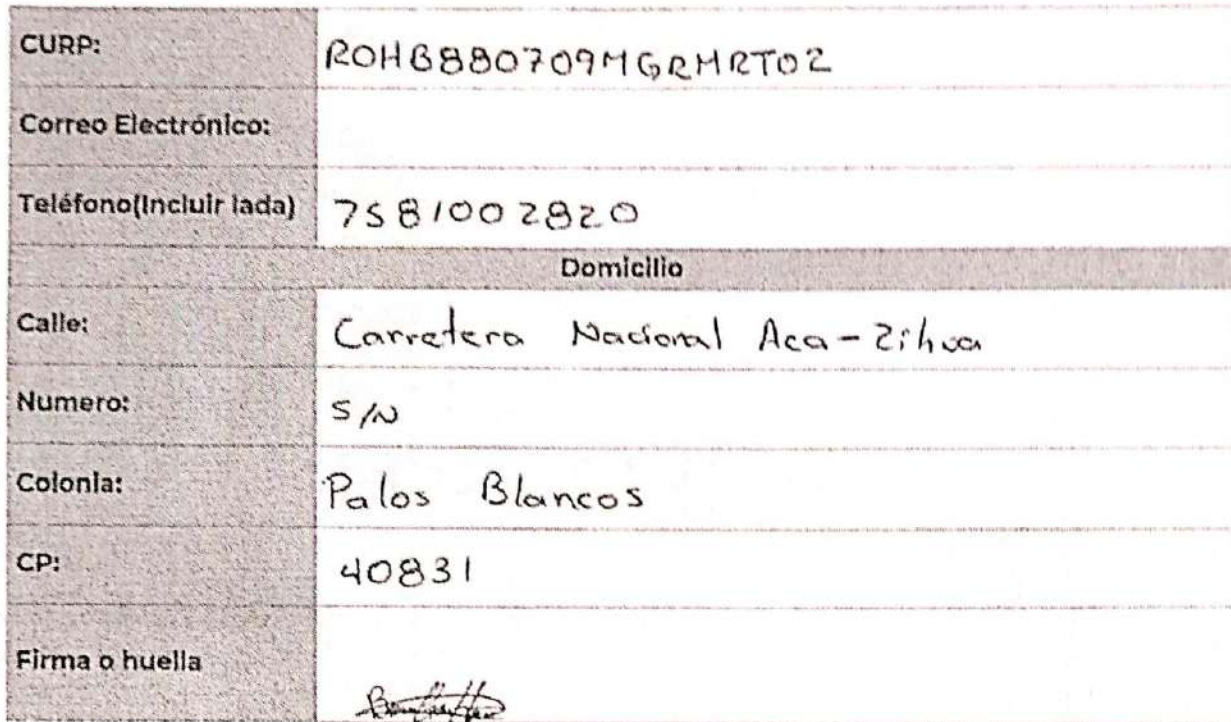 CURP: ROHB880709MGRMRT02
Correo Electrónico:
Teléfono(Incluir lada) 7581002820
Domicilio
Calle: Carretera Nacional Aca-Zihua
Numero: S/N
Colonia: Palos Blancos
CP: 40831
Firma o huella